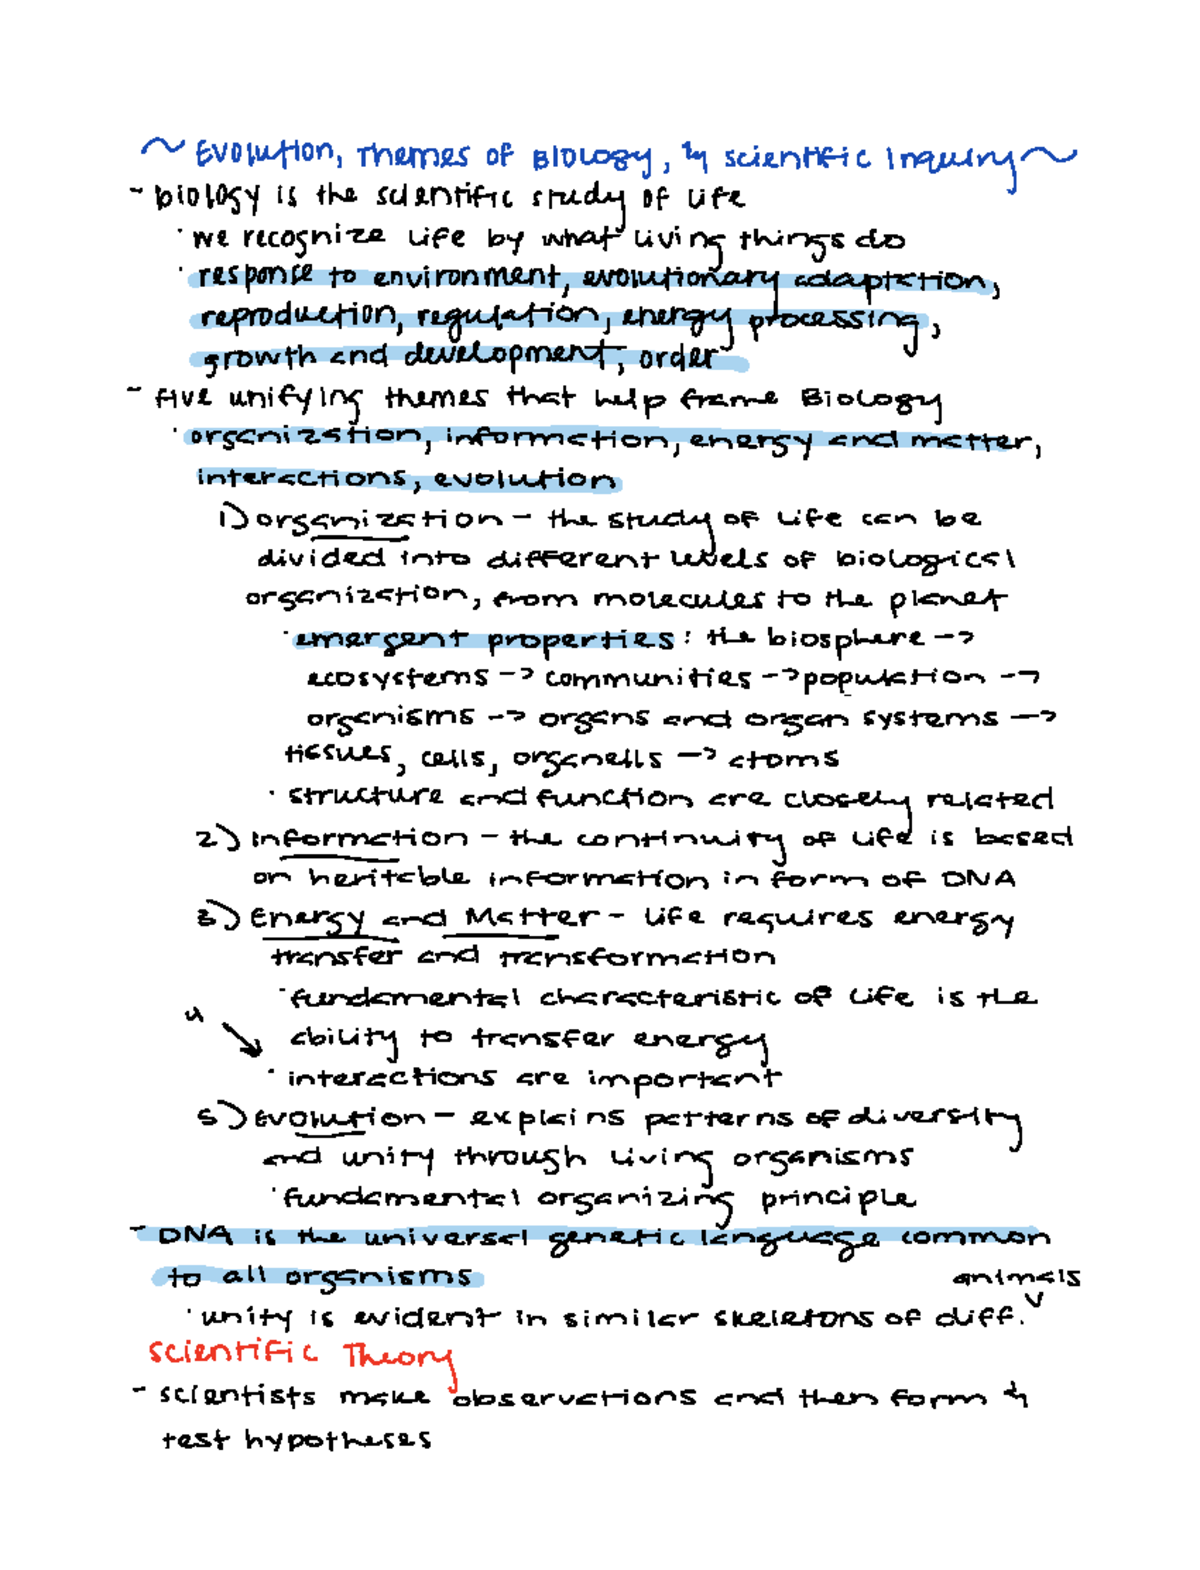 ~ Evolution, Themes of Biology, & Scientific Inquiry ~
- biology is the scientific study of life
· we recognize life by what living things do
· response to environment, evolutionary adaptation,
reproduction, regulation, energy processing,
growth and development, order
- five unifying themes that help frame Biology
· organization, information, energy and matter,
interactions, evolution
1) organization - the study of life can be
divided into different levels of biological
organization, from molecules to the planet
· emergent properties: the biosphere ->
ecosystems -> communities -> population ->
organisms -> organs and organ systems ->
tissues, cells, organells -> atoms
· structure and function are closely related
2) Information - the continuity of life is based
on heritable information in form of DNA
3) Energy and Matter - life requires energy
transfer and transformation
· fundamental characteristic of life is the
ability to transfer energy
4 ↘
· interactions are important
5) Evolution - explains patterns of diversity
and unity through living organisms
· fundamental organizing principle
- DNA is the universal genetic language common
to all organisms
animals
· unity is evident in similar skeletons of diff. v
Scientific Theory
- scientists make observations and then form &
test hypotheses